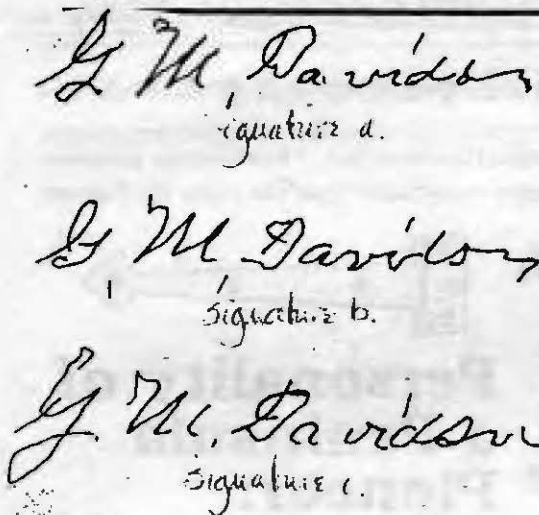 G M. Davidson
signature a.
G. M. Davidson
signature b.
G. M. Davidson
signature c.